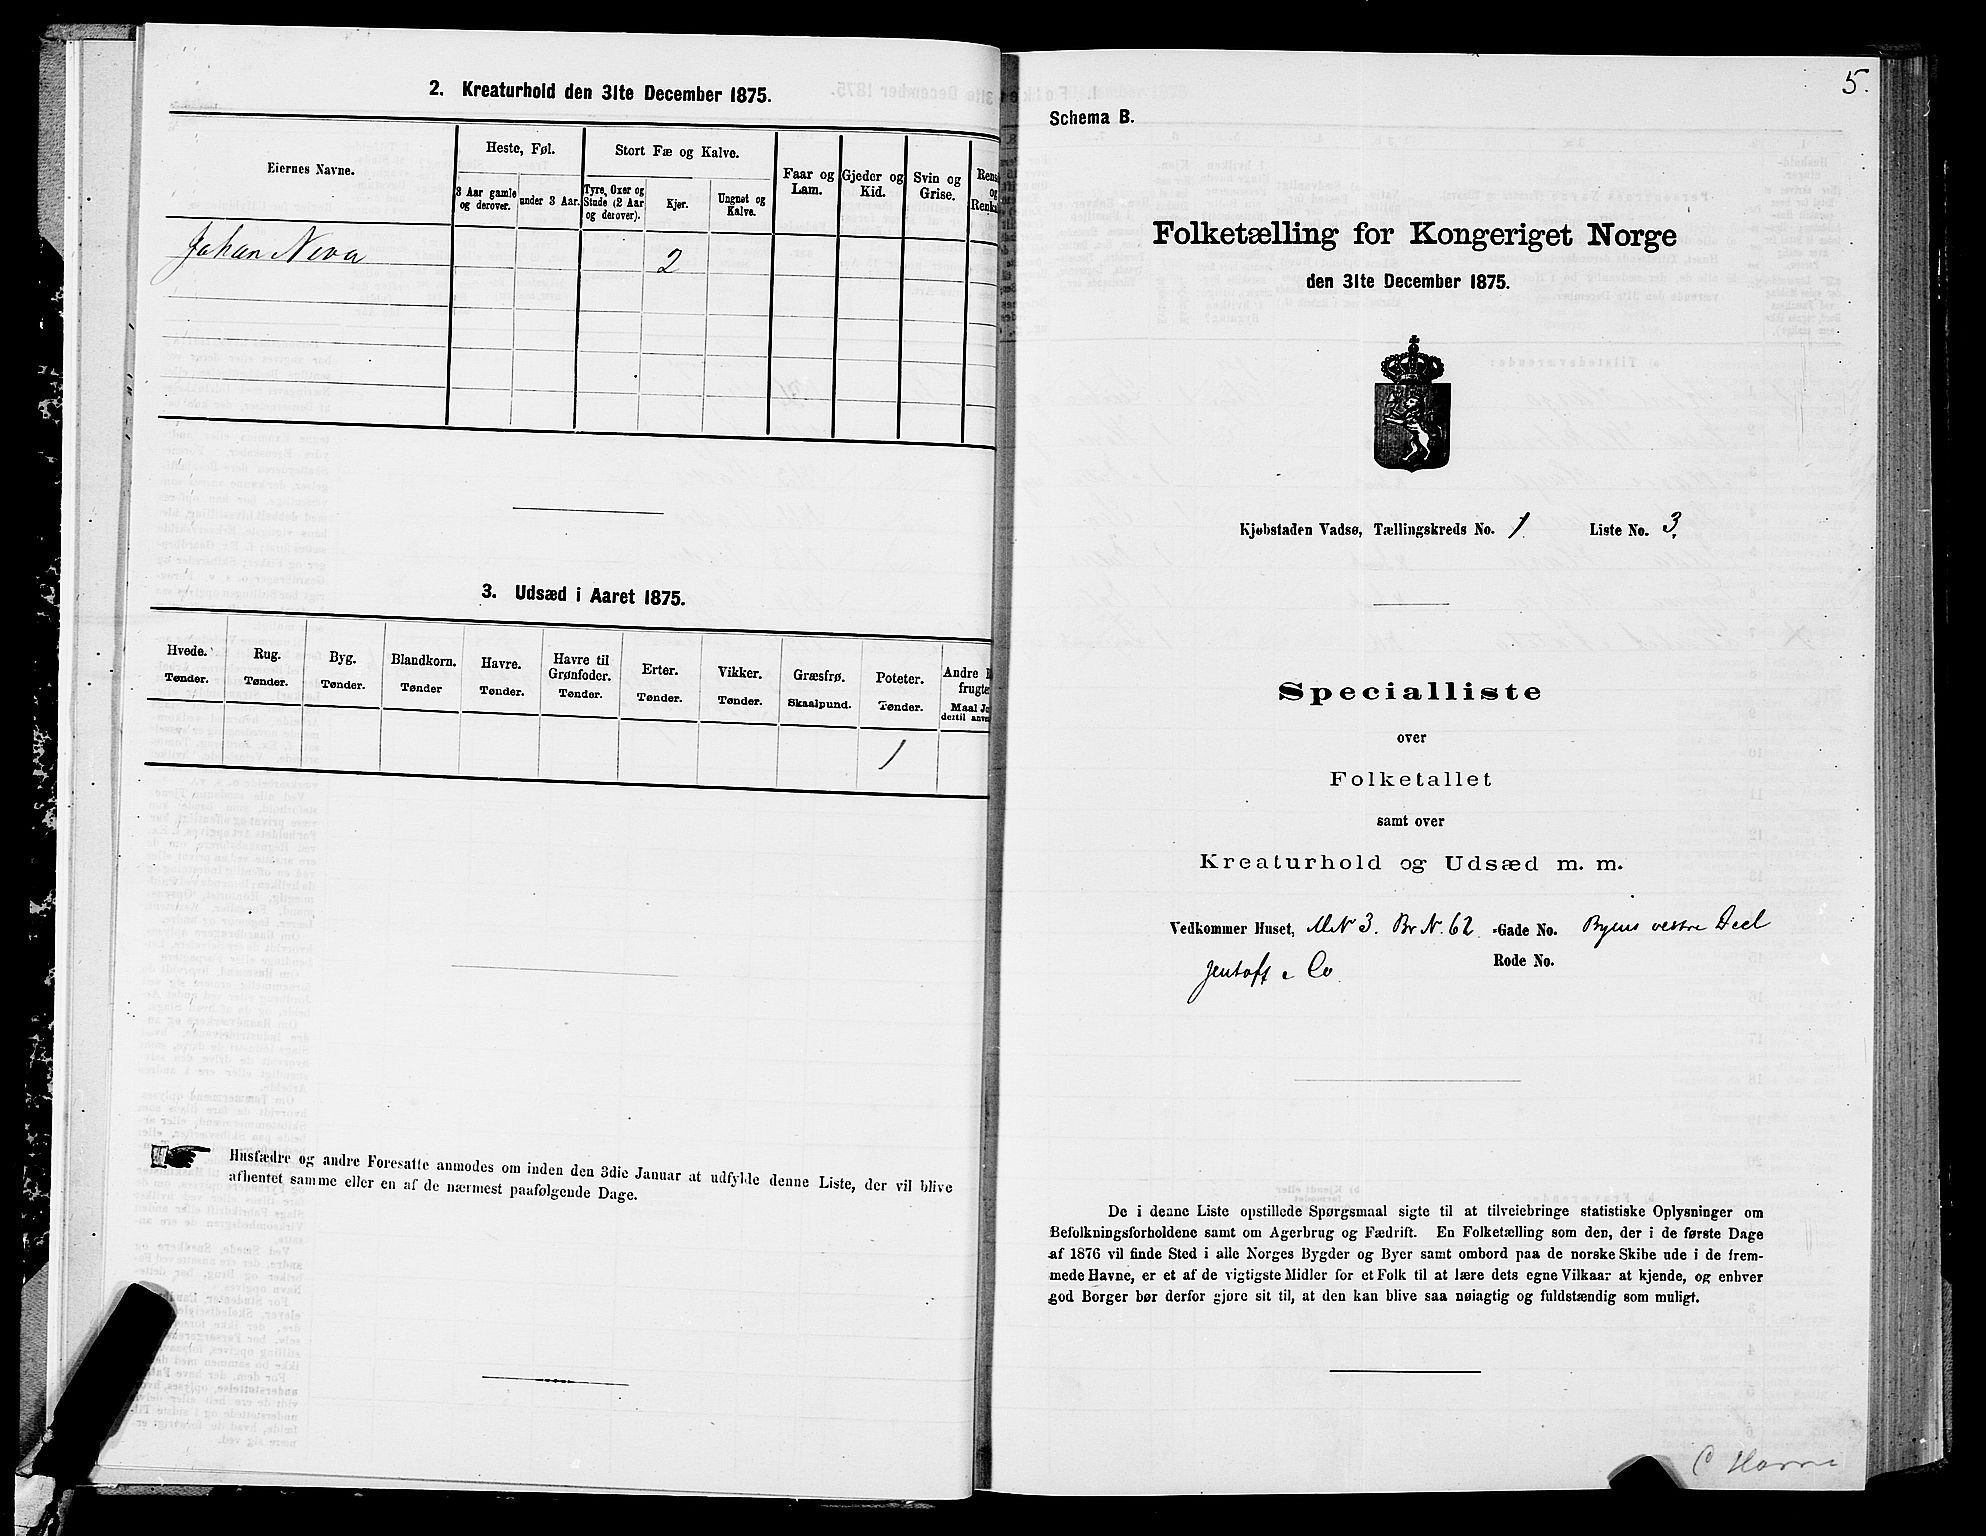 2. Kreaturhold den 31te December 1875.
Eiernes Navne.
Heste, Føl.
Stort Fæ og Kalve.
Faar og Lam.
Gjeder og Kid.
Svin og Grise.
3 Aar gamle og derover.
under 3 Aar.
Tyre, Oxer og Stude (2 Aar og derover).
Kjer.
Ungnøt og Kalve.
Johan Neva 2
3. Udsæd i Aaret 1875.
Hvede. Rug. Byg. Blandkorn. Havre. Havre til Grønfoder. Erter. Vikker. Græsfrø. Poteter. Andre
Tønder. Tønder. Tønder. Tønder Tønder. Tønder. Tønder. Tønder. Skaalpund. Tønder. Maal
1
Husfædre og andre Foresatte anmodes om inden den 3die Januar at udfylde denne Liste, der vil blive
afhentet samme eller en af de nærmest paafølgende Dage.
5.
Schema B.
Folketælling for Kongeriget Norge
den 31te December 1875.
Kjøbstaden Vadsø, Tællingskreds No. 1 Liste No. 3
Specialliste
over
Folketallet
samt over
Kreaturhold og Udsæd m. m.
Vedkommer Huset, MN 3. Br N. 62 -Gade No. Byens vestre Deel
Jentoft & Co Rode No.
De i denne Liste opstillede Spørgsmaal sigte til at tilveiebringe statistiske Oplysninger om
Befolkningsforholdene samt om Agerbrug og Fædrift. En Folketælling som den, der i de første Dage
af 1876 vil finde Sted i alle Norges Bygder og Byer samt ombord paa de norske Skibe ude i de frem-
mede Havne, er et af de vigtigste Midler for et Folk til at lære dets egne Vilkaar at kjende, og enhver
god Borger bør derfor gjøre sit til, at den kan blive saa nøiagtig og fuldstændig som muligt.